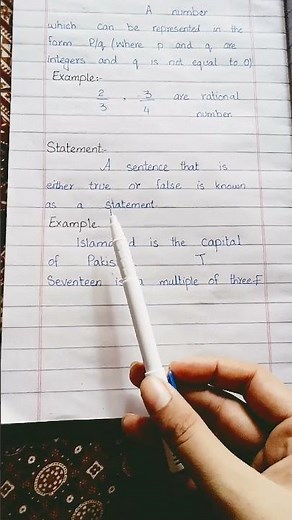 A number
which can be represented in the
form P/q (Where p and q are
integers and q is not equal to 0)
Example:-
2/3 , 3/4 are rational
number.
Statement:-
A sentence that is
either true or false is known
as a statement.
Example
is the capital
of T
Seventeen is a multiple of three-F